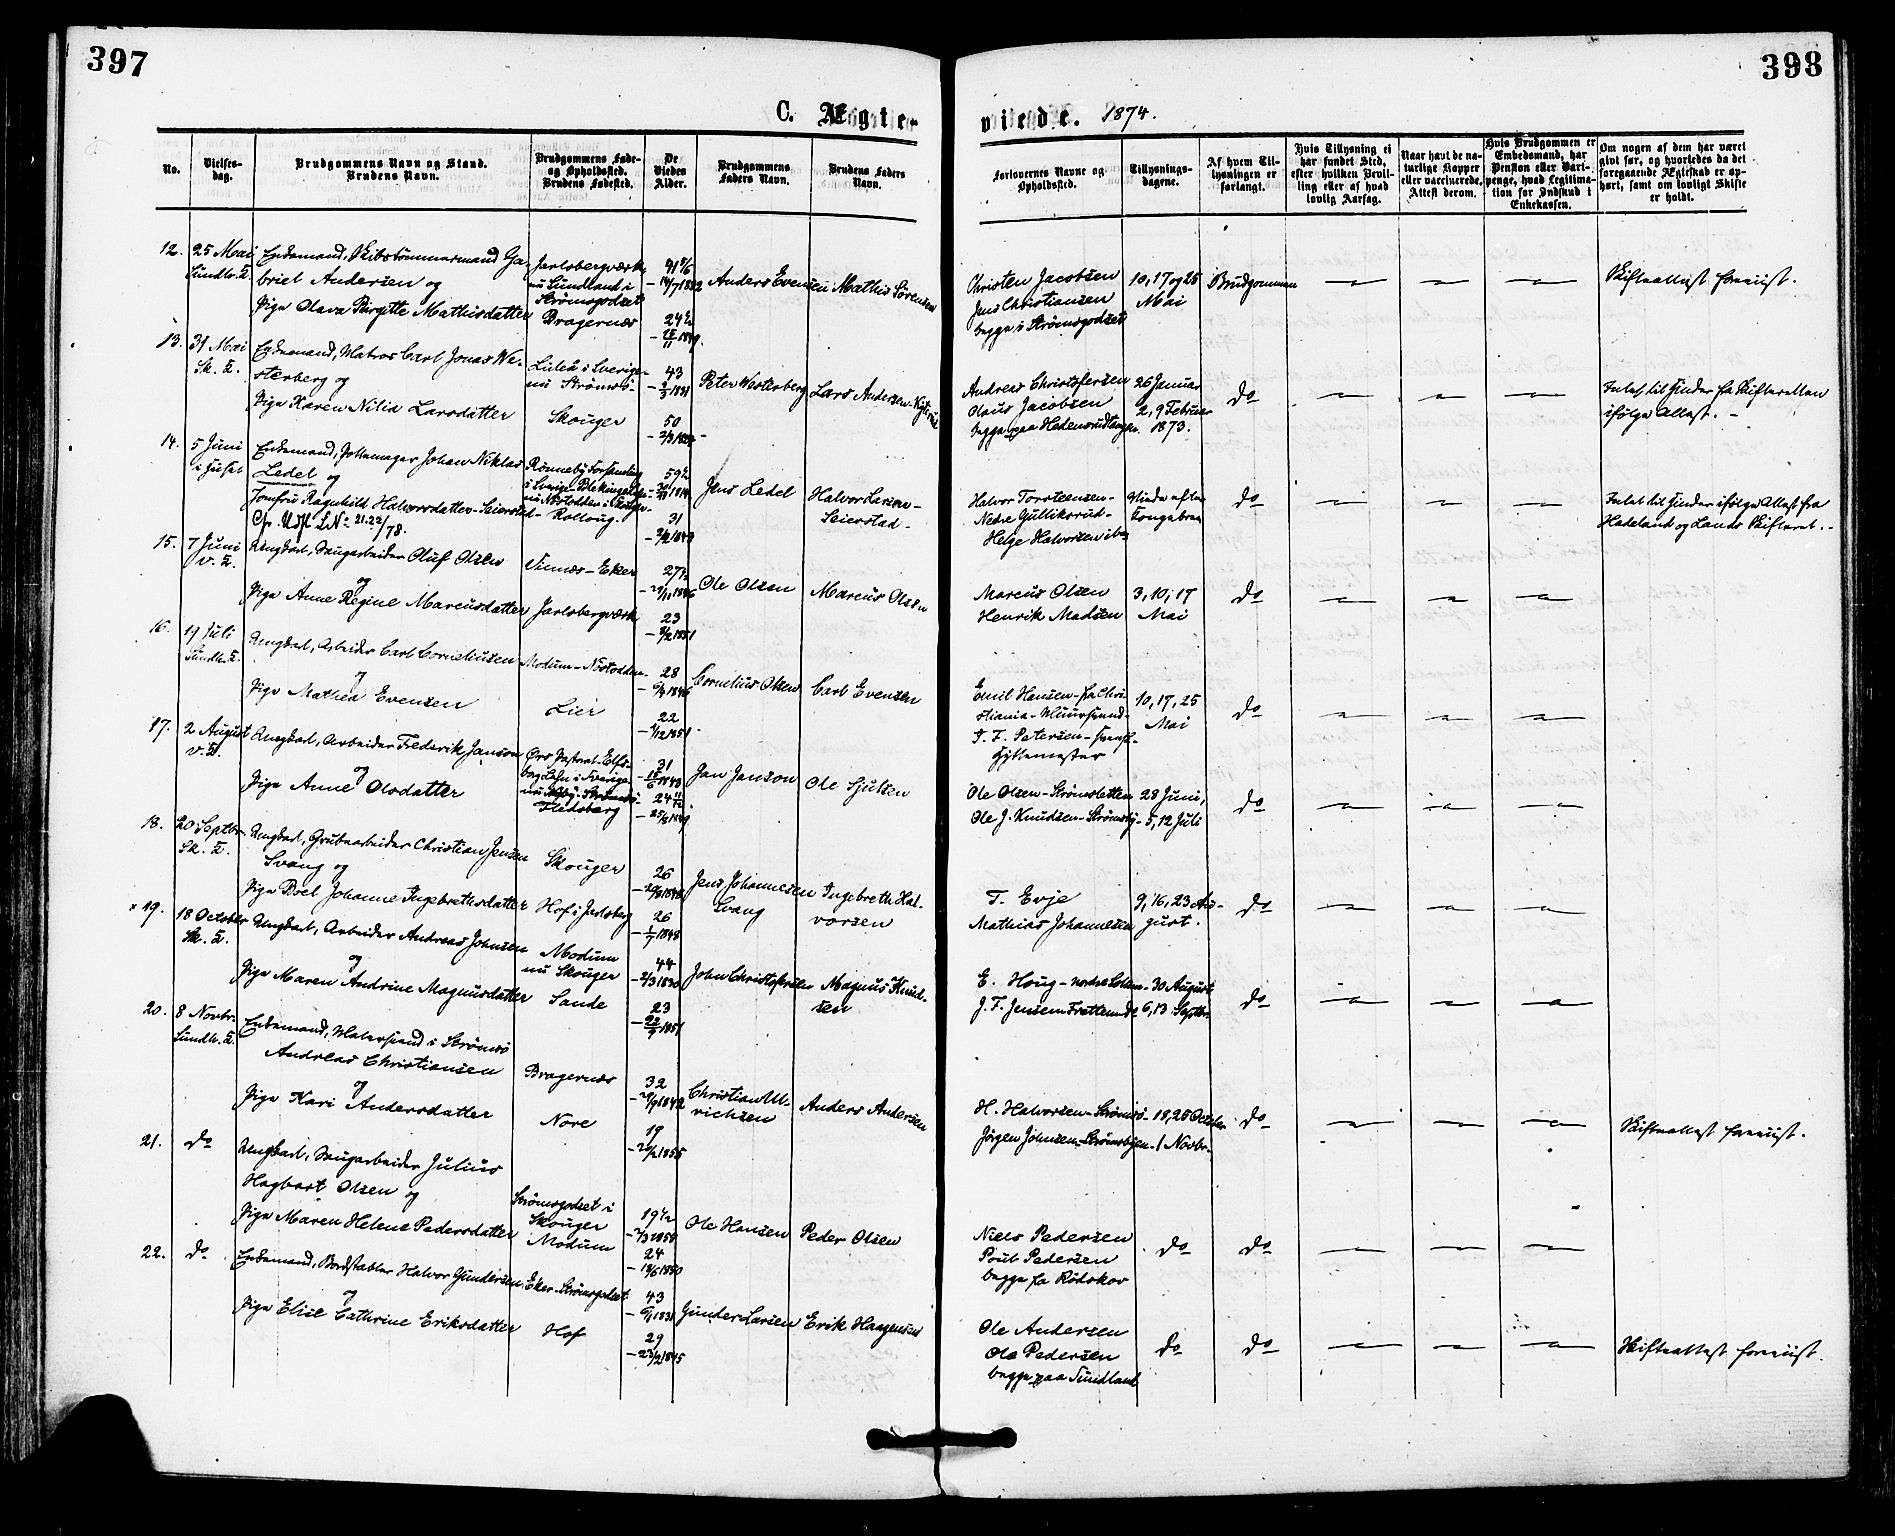 397
398
C. Ægte-
viede. 1874.
No.
Vielses-
dag.
Brudgommens Navn og Stand.
Brudens Navn.
Brudgommens Føde-
og Opholdssted.
Brudens Fødested.
De
Viedes
Alder.
Brudgommens
Faders Navn.
Brudens Faders
Navn.
Forlovernes Navne og
Opholdssted.
Tillysnings-
dagene.
Af hvem Til-
lysningen er
forlangt.
Hvis Tillysning ei
har fundet Sted,
efter hvilken Bevil-
ling eller af hvad
lovlig Aarsag.
Naar havt de na-
turlige Kopper
eller vaccinerede,
Attest derom.
Hvis Brudgommen er
Embedsmand, har
Pension eller Vart-
penge, hvad Legitima-
tion for Indskud i
Enkekassen.
Om nogen af dem har været
gift før, og hvorledes da det
foregaaende Ægteskab er op-
hørt, samt om lovligt Skifte
er holdt.
12. 25 Mai
Sundh. K.
Enkemand, Skibstømmermand Ga-
briel Andersen og
Pige Olava Birgitte Mathisdatter
Jarlsbergværk
nu Sundland i
Strømsgodset
Bragernes
Anders Evensen
Mathis Sørensen
Christen Jacobsen
Jens Christiansen
begge i Strømsgodset
10, 17 og 25
Mai
Brudgommen
Skifteattest foreviist.
13. 31 Mai
Sk. K.
Enkemand, Matros Carl Jonas We-
sterberg og
Pige Karen Nilia Larsdatter
Luleå i Sverige-
nu Strømsø-
Skouger
43
50
Peter Westerberg
Lars Andersen
Andreas Christofersen
Olaus Jacobsen
26 Januar
2, 9 Februar
1873.
do
Intet til Hinder fra Skifteretten
ifølge Attest. -
14. 5 Juni
i Huset
Enkemand, Pottemager Johan Niklas
Ledel og
Jomfru Ragnhild Halvorsdatter-Seierstad-
Cfr. Udst LNo 21.22/78.
Rønneby Forsamling
i Sverige
Kolloug-
59½
31
Jens Ledel
Halvor Larsen-
Seierstad-
Halvor Torstensen-
Nedre Gulliksrud-
Helge Halvorsen
do
Intet til Hinder ifølge Attest fra
Hadeland og Lands Skifteret. -
15. 7 Juni
V. K.
Ungkarl, Saugarbeider Oluf Olsen
og
Pige Anne Regine Marcusdatter
Eker
Jarlsbergværk
27½
23
Ole Olsen
Marcus Olsen
Marcus Olsen
Henrik Madsen
3, 10, 17
Mai
do
16. 19 Juli
Sundh. K.
Ungkarl, Arbeider Carl Corneliusen
og
Pige Mathea Evensen
Modum-
Lier
28
22
Cornelius Olsen
Carl Evensen
Emil Hansen- fra Chri-
stiania-
T. F. Petersen-
10, 17, 25
Mai
do
17. 2 August
V. K.
Ungkarl, Arbeider Frederik Janson
og
Pige Anne Olsdatter
Flesberg
31
Jan Janson
Ole Sjulsen
Ole Olsen-Strømsletten
Ole J. Knudsen-Strømsby-
28 Juni,
5, 12 Juli
do
18. 20 Septbr.
Sk. K.
Ungkarl, Grubearbeider Christian Jensen
Svang og
Pige Boel Johanne Ingebrethsdatter
Skouger
Hof i Jarlsberg
26
26
Jens Johannesen
Svang
Ingebreth Hal-
vorsen
T. Evje
Mathias Johannesen
9, 16, 23 Au-
gust.
do
19. 18 October
Sk. K.
Ungkarl, Arbeider Andreas Johnsen
og
Pige Maren Andrine Magnusdatter
Modum
nu Skouger
Sande
44
23
John Christofersen
Magnus Knud-
sen
E. Houg-
J. F. Jensen
30 August
6, 13 Septbr.
do
20. 8 Novbr.
Sundh. K.
Enkemand, Malersvend i Strømsø
Andreas Christiansen
og
Pige Kari Andersdatter
Bragernes
Nore
32
19
Christian Ul-
richsen
Anders Andersen
H. Halvorsen-Strømsø-
Jørgen Johnsen-
18, 25 October
1 Novbr.
do
Skifteattest foreviist.
21. do
Ungkarl, Saugarbeider Julius
Hagbart Olsen og
Pige Maren Helene Pedersdatter
Strømsgodset i
Skouger
Modum
19½
24
Ole Hansen
Peder Olsen
Niels Pedersen
Poul Pedersen
begge fra Rødskov
do
do
22. do
Enkemand, Bordstabler Halvor Gundersen
og
Pige Elise Cathrine Eriksdatter
Eker-Strømsgodset
Hof
43
29
Gunder Larsen
Erik Haagensen
Ole Andersen
Ole Pedersen
begge paa Sundland
do
do
Skifteattest foreviist.